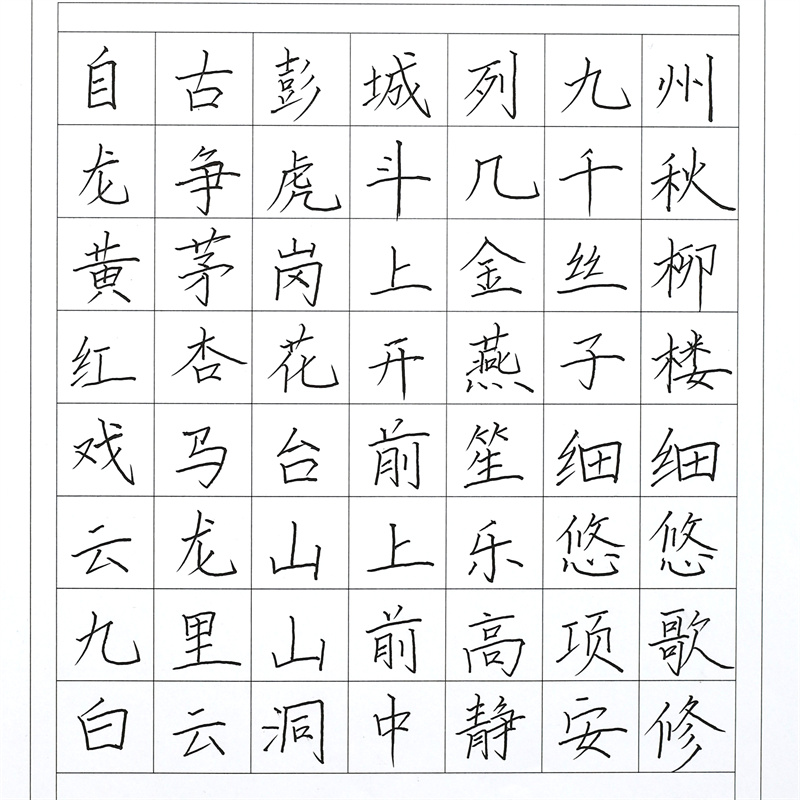 自古彭城列九州
龙争虎斗几千秋
黄茅岗上金丝柳
红杏花开燕子楼
戏马台前笙细细
云龙山上乐悠悠
九里山前高项歌
白云洞中静安修